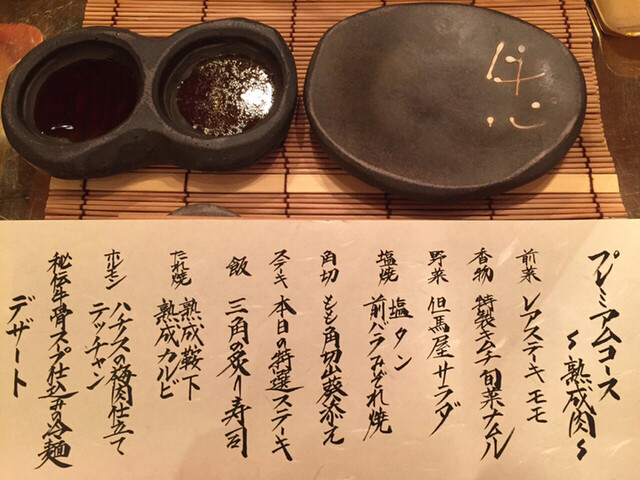 プレミアムコース
〜熟成肉〜
前菜 レアステーキ モモ
香物 特製キムチ 旬菜ナムル
野菜 但馬屋サラダ
塩焼 塩タン
前バラみぞれ焼
角切 もも角切山葵添え
ステーキ 本日の特選ステーキ
飯 三角の炙り寿司
たれ焼 熟成鞍下
熟成カルビ
ホルモン ハチノスの梅肉仕立て
テッチャン
秘伝牛骨スープ仕込みの冷麺
デザート